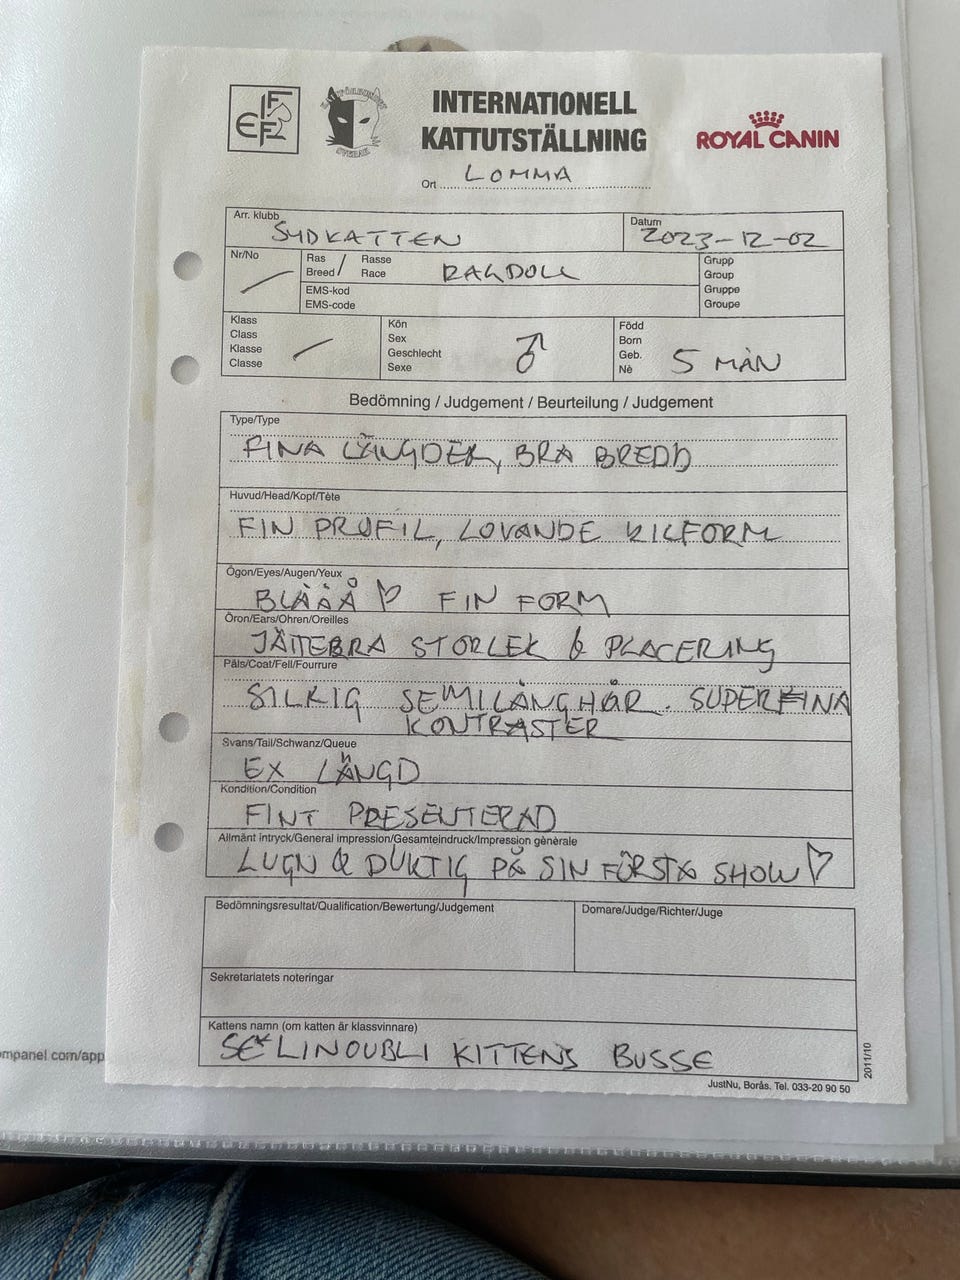 FIFE
SVERAK
INTERNATIONELL
KATTUTSTÄLLNING
ROYAL CANIN
Ort LOMMA
Arr. klubb SYDKATTEN
Datum 2023-12-02
Nr/No
Ras Rasse
Breed Race
RAGDOLL
EMS-kod
EMS-code
Grupp
Group
Gruppe
Groupe
Klass
Class
Klasse
Classe
Kön
Sex
Geschlecht
Sexe
♂
Född
Born
Geb.
Nè
5 MÅN
Bedömning / Judgement / Beurteilung / Judgement
Type/Type
FINA LÄNGDER, BRA BREDD
Huvud/Head/Kopf/Tète
FIN PROFIL, LOVANDE KILFORM
Ögon/Eyes/Augen/Yeux
BLÅÅÅ ♡ FIN FORM
Öron/Ears/Ohren/Oreilles
JÄTTEBRA STORLEK & PLACERING
Päls/Coat/Fell/Fourrure
SILKIG SEMILÅNGHÅR. SUPERFINA
KONTRASTER
Svans/Tail/Schwanz/Queue
EX LÄNGD
Kondition/Condition
FINT PRESENTERAD
Allmänt intryck/General impression/Gesamteindruck/Impression gènèrale
LUGN & DUKTIG PÅ SIN FÖRSTA SHOW ♡
Bedömningsresultat/Qualification/Bewertung/Judgement
Domare/Judge/Richter/Juge
Sekretariatets noteringar
Kattens namn (om katten är klassvinnare)
SE* LINOUBLI KITTENS BUSSE
2011/10
JustNu, Borås. Tel. 033-20 90 50
mpanel.com/app